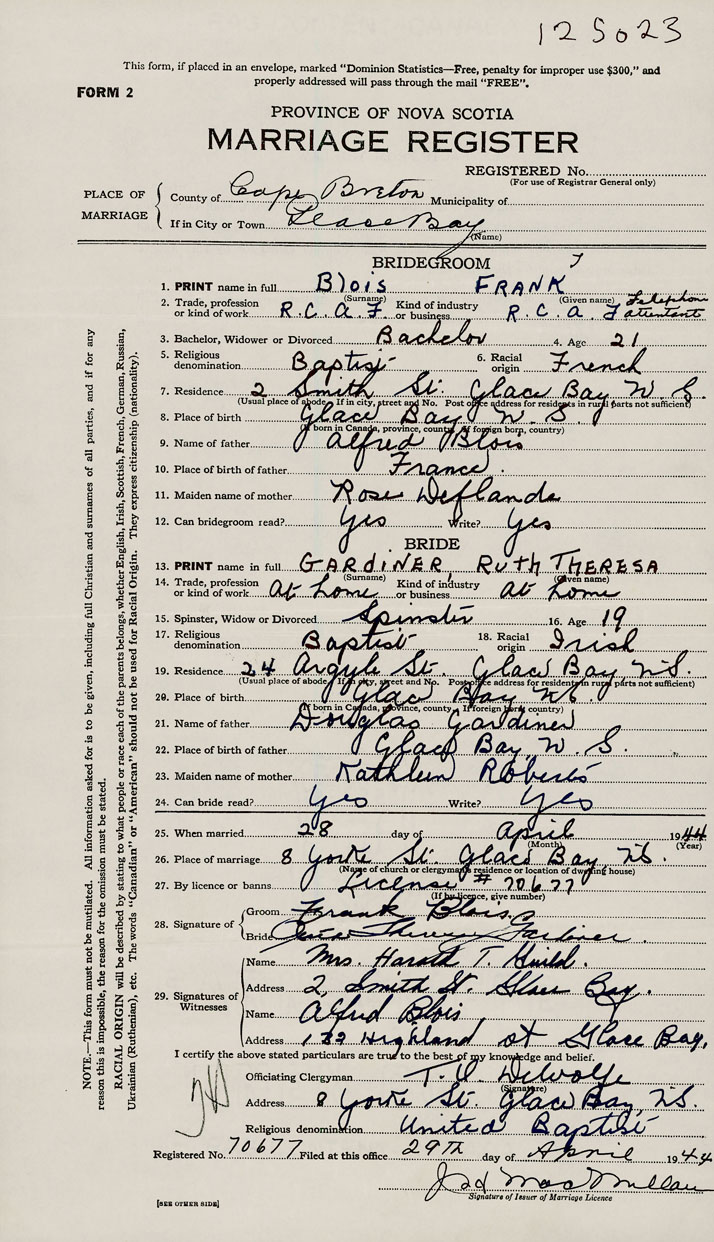 125023
This form, if placed in an envelope, marked "Dominion Statistics—Free, penalty for improper use $300," and
properly addressed will pass through the mail "FREE".
FORM 2
PROVINCE OF NOVA SCOTIA
MARRIAGE REGISTER
REGISTERED No.
(For use of Registrar General only)
PLACE OF MARRIAGE
County of Cape Breton Municipality of
If in City or Town Glace Bay
(Name)
BRIDEGROOM
1. PRINT name in full Blois FRANK
(Surname) (Given name)
2. Trade, profession or kind of work R.C.A.F Kind of industry or business R.C.A.F Telephone attendant
3. Bachelor, Widower or Divorced Bachelor 4. Age 21
5. Religious denomination Baptist 6. Racial origin French
7. Residence 2 Smith St. Glace Bay N.S.
(Usual place of abode. If in city, street and No. Post office address for residents in rural parts not sufficient)
8. Place of birth Glace Bay N.S.
(If born in Canada, province, country. If foreign born, country)
9. Name of father Alfred Blois
10. Place of birth of father France
11. Maiden name of mother Rose
12. Can bridegroom read? Yes Write? Yes
BRIDE
13. PRINT name in full GARDINER, RUTH THERESA
(Surname) (Given name)
14. Trade, profession or kind of work At Home Kind of industry or business at home
15. Spinster, Widow or Divorced Spinster 16. Age 19
17. Religious denomination Baptist 18. Racial origin Irish
19. Residence 24 Argyle St. Glace Bay N.S.
(Usual place of abode. If in city, street and No. Post office address for residents in rural parts not sufficient)
20. Place of birth Glace Bay N.S.
(If born in Canada, province, county. If foreign born, country)
21. Name of father Douglas Gardiner
22. Place of birth of father Glace Bay, N.S.
23. Maiden name of mother Kathleen Roberts
24. Can bride read? Yes Write? Yes
25. When married 28 day of April 1944
(Month) (Year)
26. Place of marriage 8 Yorke St. Glace Bay N.S.
(Name of church or clergyman's residence or location of dwelling house)
27. By licence or banns License # 70677
(If by licence, give number)
28. Signature of
Groom Frank Blois
Bride Theresa Gardiner
29. Signatures of Witnesses
Name Mrs. Harold T. Guild.
Address 2, Smith St. Glace Bay.
Name Alfred Blois
Address 132 Highland st Glace Bay,
I certify the above stated particulars are true to the best of my knowledge and belief.
Officiating Clergyman T. W. DeWolfe
(Signature)
Address 8 Yorke St. Glace Bay N.S.
Religious denomination United Baptist
Registered No. 70677 Filed at this office 29th day of April 1944
MacMillan
Signature of Issuer of Marriage Licence
[SEE OTHER SIDE]
NOTE.—This form must not be mutilated. All information asked for is to be given, including full Christian and surnames of all parties, and if for any
reason this is impossible, the reason for the omission must be stated.
RACIAL ORIGIN will be described by stating to what people or race each of the parents belongs, whether English, Irish, Scottish, French, German, Russian,
Ukrainian (Ruthenian), etc. The words "Canadian" or "American" should not be used for Racial Origin. They express citizenship (nationality).